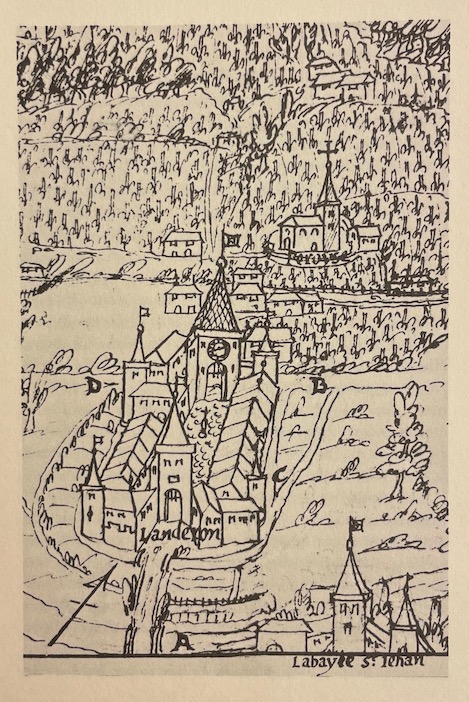 D
B
C
Landeron
A
Labayee s: Iehan